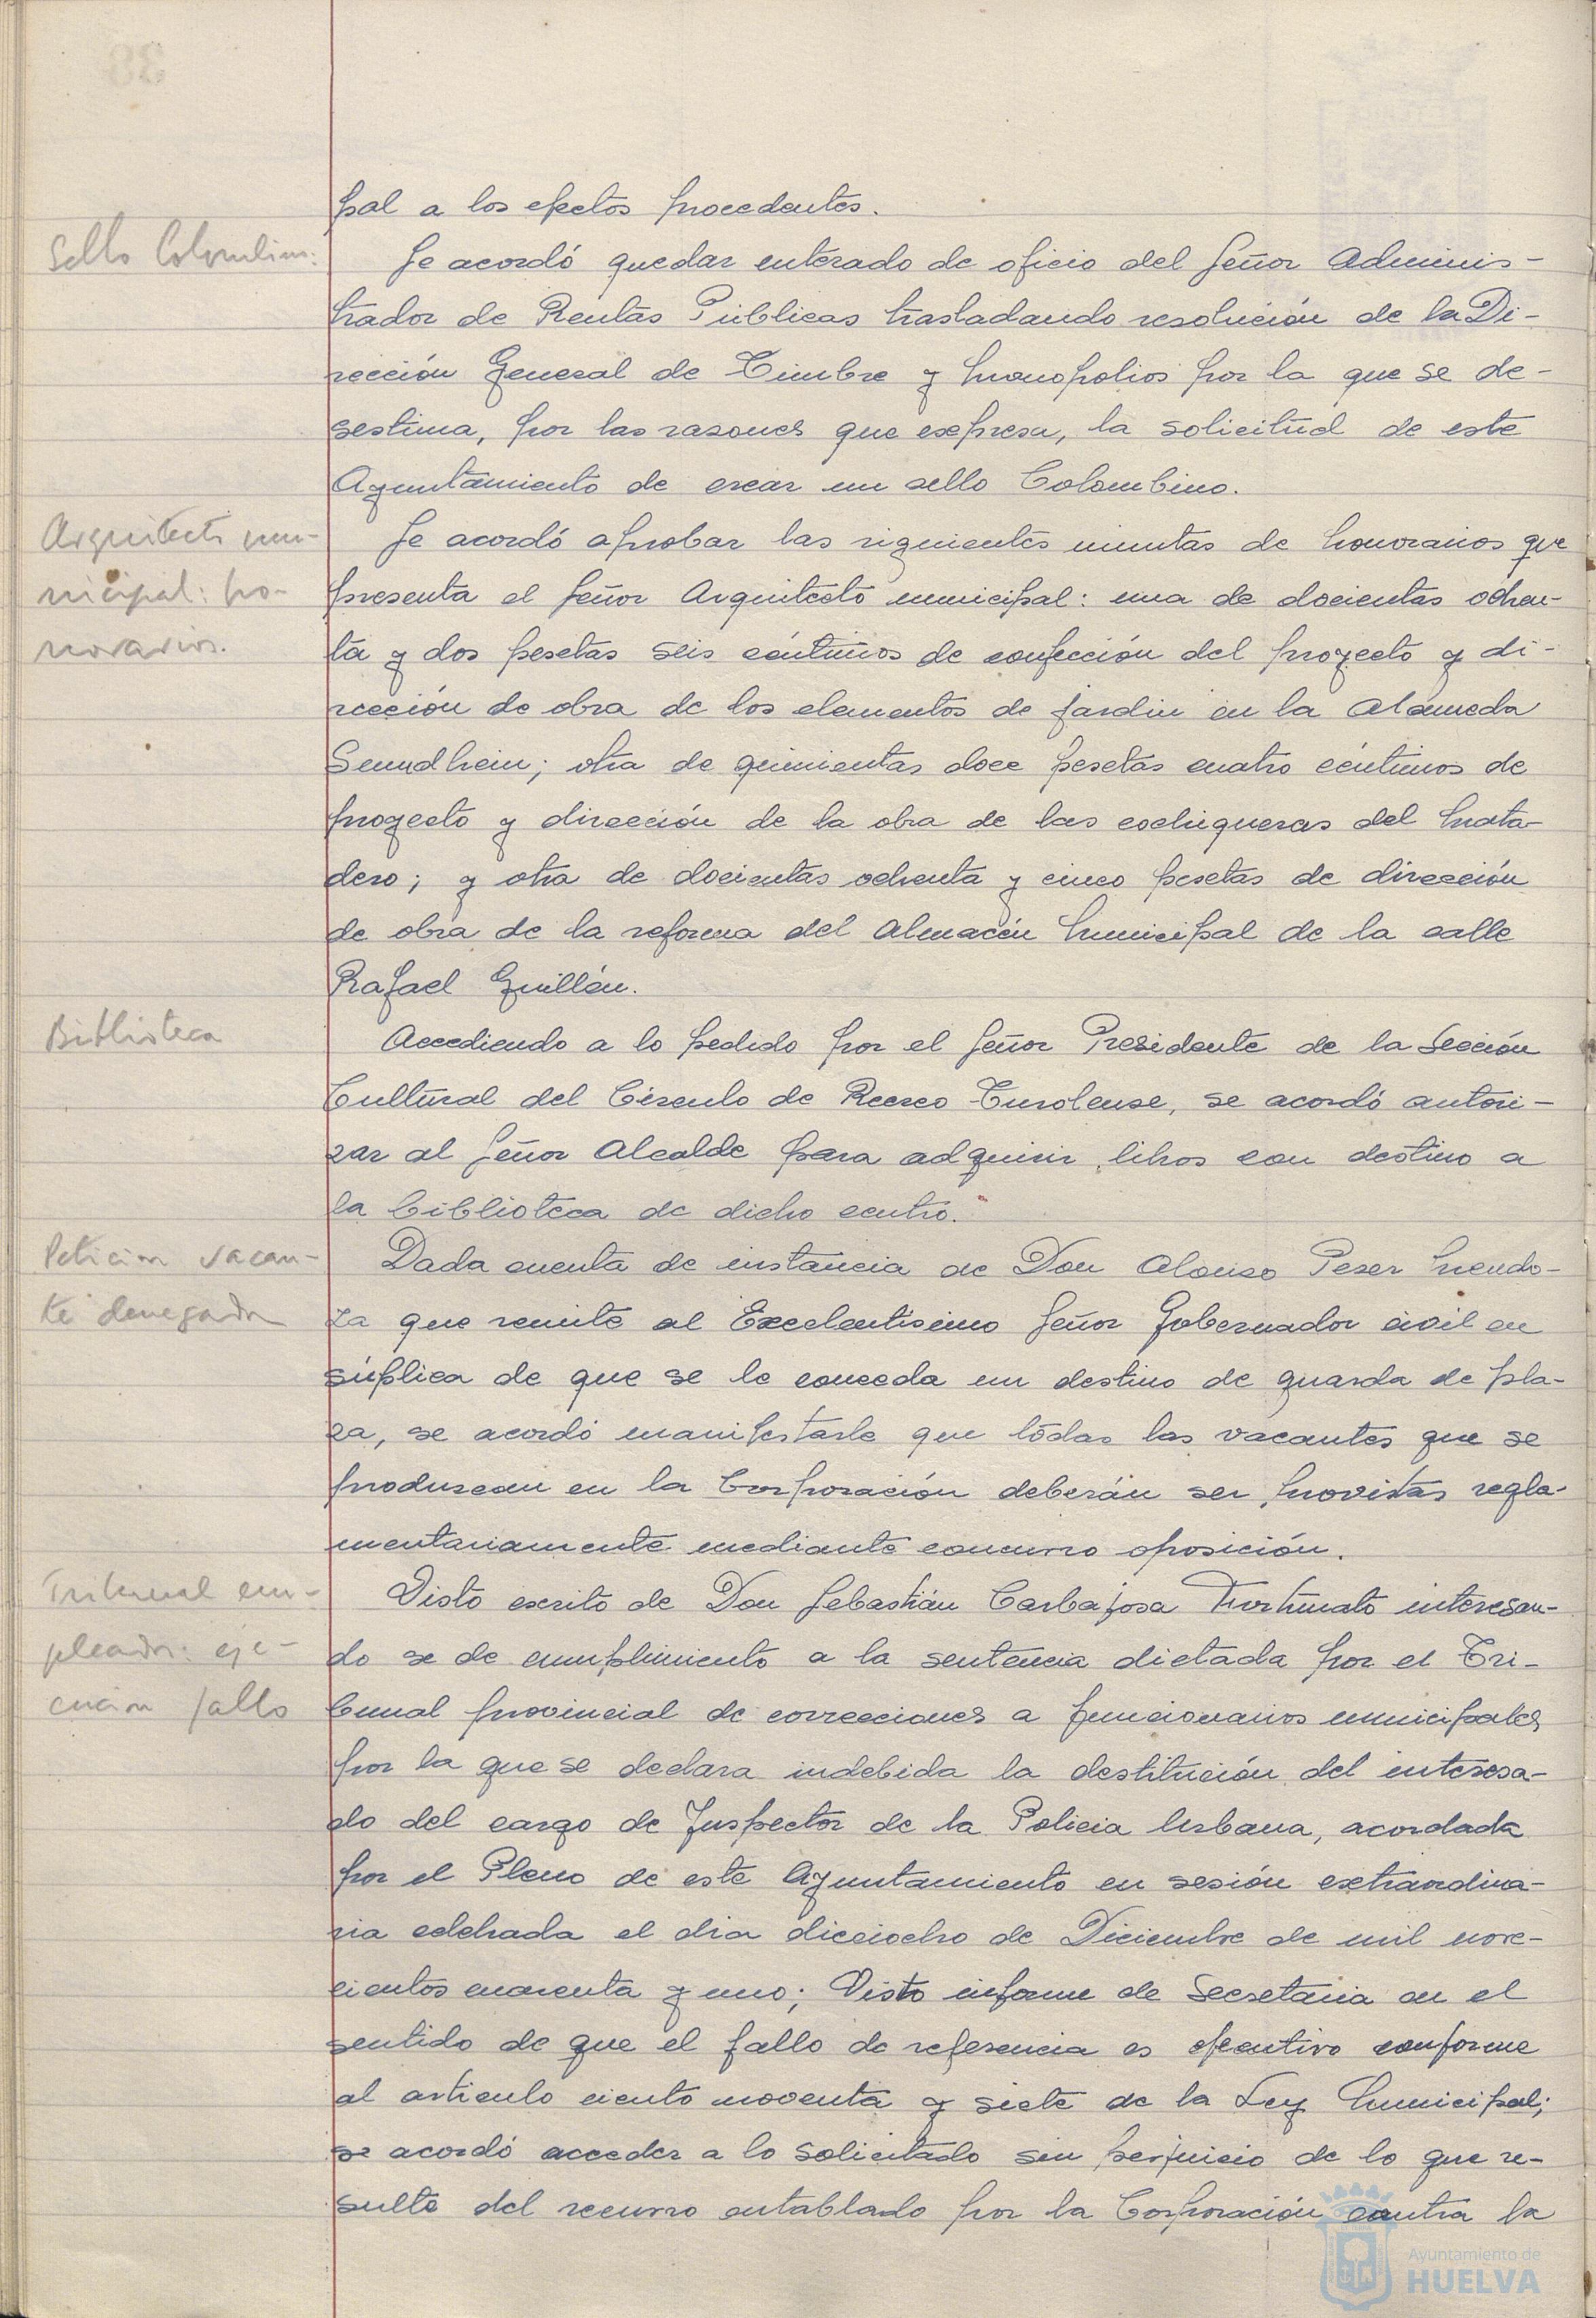 pal a los efectos procedentes.
Sello Colombino:
Se acordó quedar enterado de oficio del Señor Adminis-
trador de Rentas Públicas trasladando resolución de la Di-
rección General de Timbre y Monopolios por la que se de-
sestima, por las razones que expresa, la solicitud de este
Ayuntamiento de crear un sello Colombino.
Arquitecto mu-
nicipal: ho-
norarios.
Se acordó aprobar las siguientes minutas de honorarios que
presenta el Señor Arquitecto municipal: una de docientas ochen-
ta y dos pesetas seis céntimos de confección del proyecto y di-
rección de obra de los elementos de jardin en la Alameda
Sumdhein; otra de quinientas doce pesetas cuatro céntimos de
proyecto y dirección de la obra de las cochiqueras del Mata-
dero; y otra de docientas ochenta y cinco pesetas de dirección
de obra de la reforma del Almacén Municipal de la calle
Rafael Guillén.
Biblioteca
Accediendo a lo pedido por el Señor Presidente de la Sección
Cultural del Círculo de Recreo Turolense, se acordó autori-
zar al Señor Alcalde para adquirir libros con destino a
la biblioteca de dicho centro.
Peticion vacan-
te denegada
Dada cuenta de instancia de Don Alonso Peser Mendo-
za que remite al Excelentísimo Señor Gobernador civil en
súplica de que se le conceda un destino de guarda de pla-
za, se acordó manifestarle que todas las vacantes que se
produzcan en la Corporación deberán ser provistas regla-
mentariamente mediante concurso oposición.
Tribunal em-
pleados: eje-
cución fallo
Visto escrito de Don Sebastián Carbajosa Fortunato interesan-
do se de cumplimiento a la sentencia dictada por el Tri-
bunal provincial de correcciones a funcionarios municipales
por la que se declara indebida la destitución del interesa-
do del cargo de Inspector de la Policia Urbana, acordada
por el Pleno de este Ayuntamiento en sesión extraordina-
ria celebrada el dia dieciocho de Diciembre de mil nove-
cientos cuarenta y uno; Visto informe de Secretaria en el
sentido de que el fallo de referencia es ejecutivo conforme
al articulo ciento noventa y siete de la Ley Municipal;
se acordó acceder a lo solicitado sin perjuicio de lo que re-
sulte del recurso entablado por la Corporación contra la
Ayuntamiento de
HUELVA